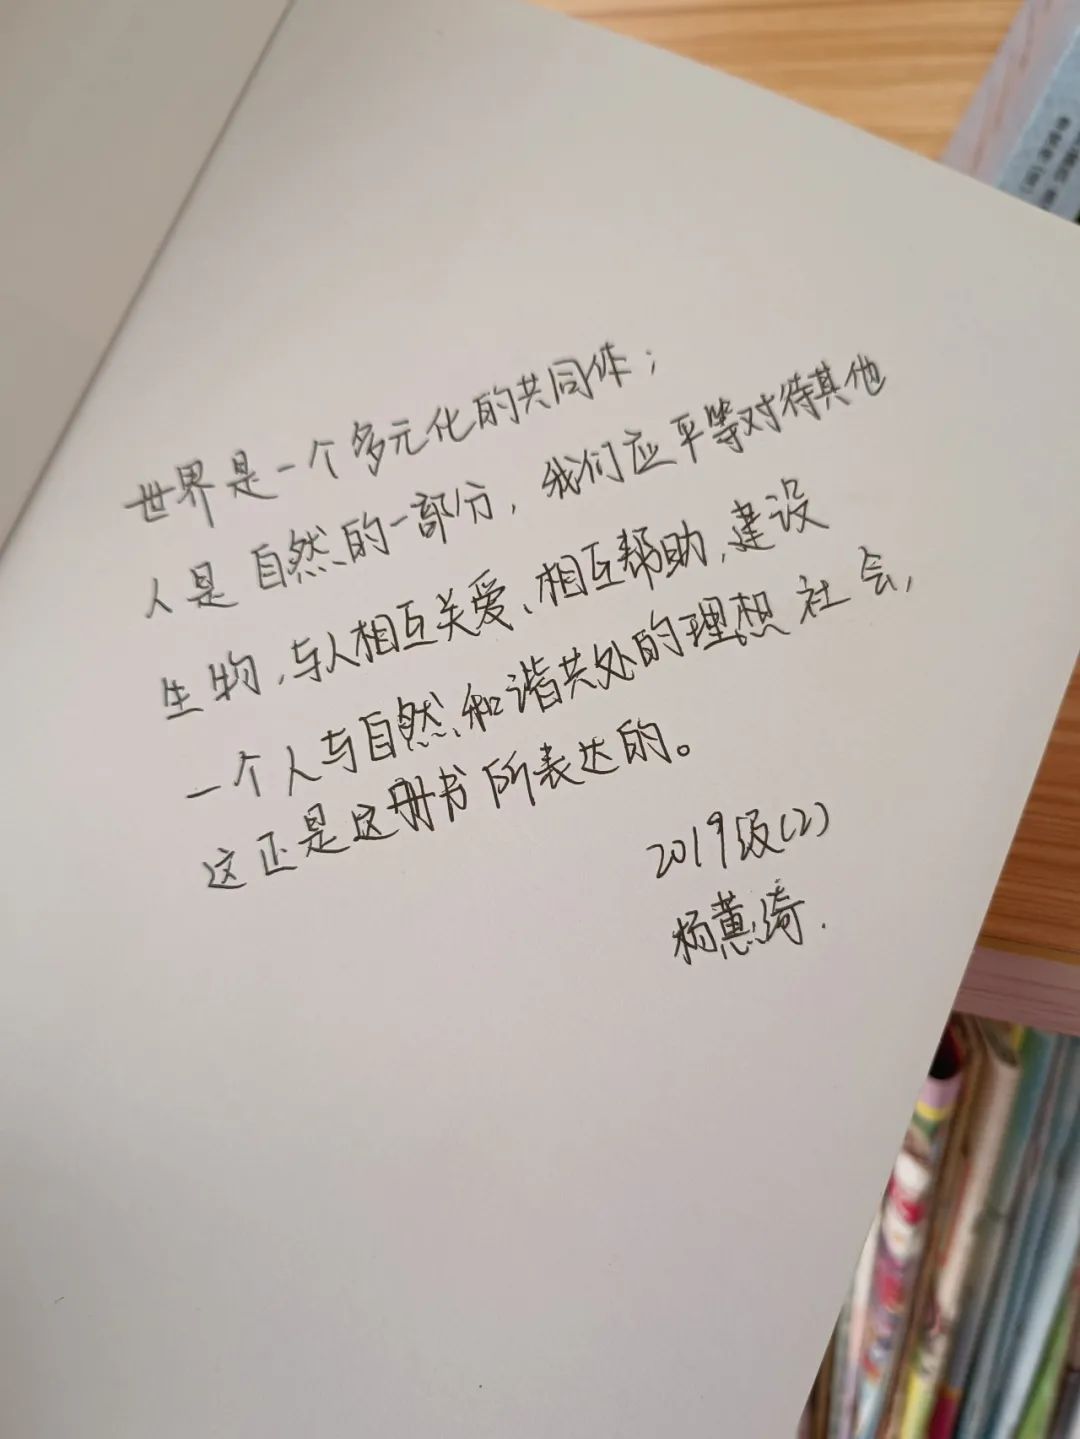 世界是一个多元化的共同体；
人是自然的一部分，我们应平等对待其他
生物，与人相互关爱、相互帮助，建设
一个人与自然和谐共处的理想社会，
这正是这册书所表达的。
2019级(2)
杨蕙绮.